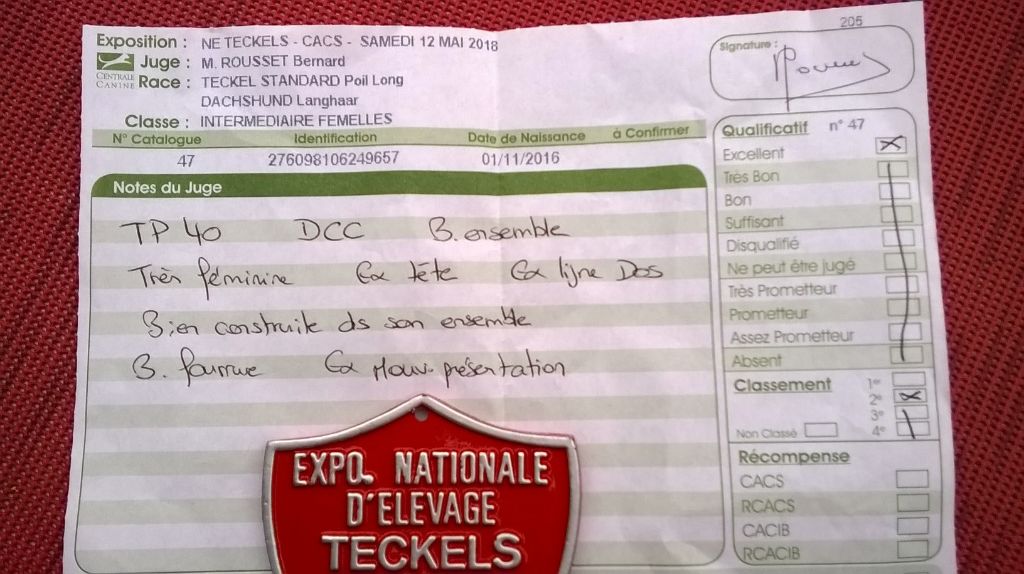 205
Exposition : NE TECKELS - CACS - SAMEDI 12 MAI 2018
Juge : M. ROUSSET Bernard
CENTRALE CANINE
Race : TECKEL STANDARD Poil Long
DACHSHUND Langhaar
Classe : INTERMEDIAIRE FEMELLES
Signature :
N° Catalogue Identification Date de Naissance à Confirmer
47 276098106249657 01/11/2016
Notes du Juge
TP 40 DCC B. ensemble
Très féminine Ex tête Ex ligne Dos
Bien construite ds son ensemble
B. fourrure Ex Mouv. présentation
Qualificatif n° 47
Excellent
Très Bon
Bon
Suffisant
Disqualifié
Ne peut être jugé
Très Prometteur
Prometteur
Assez Prometteur
Absent
Classement 1er
2e
3e
Non Classé 4e
Récompense
CACS
RCACS
CACIB
RCACIB
EXPO. NATIONALE
D'ELEVAGE
TECKELS